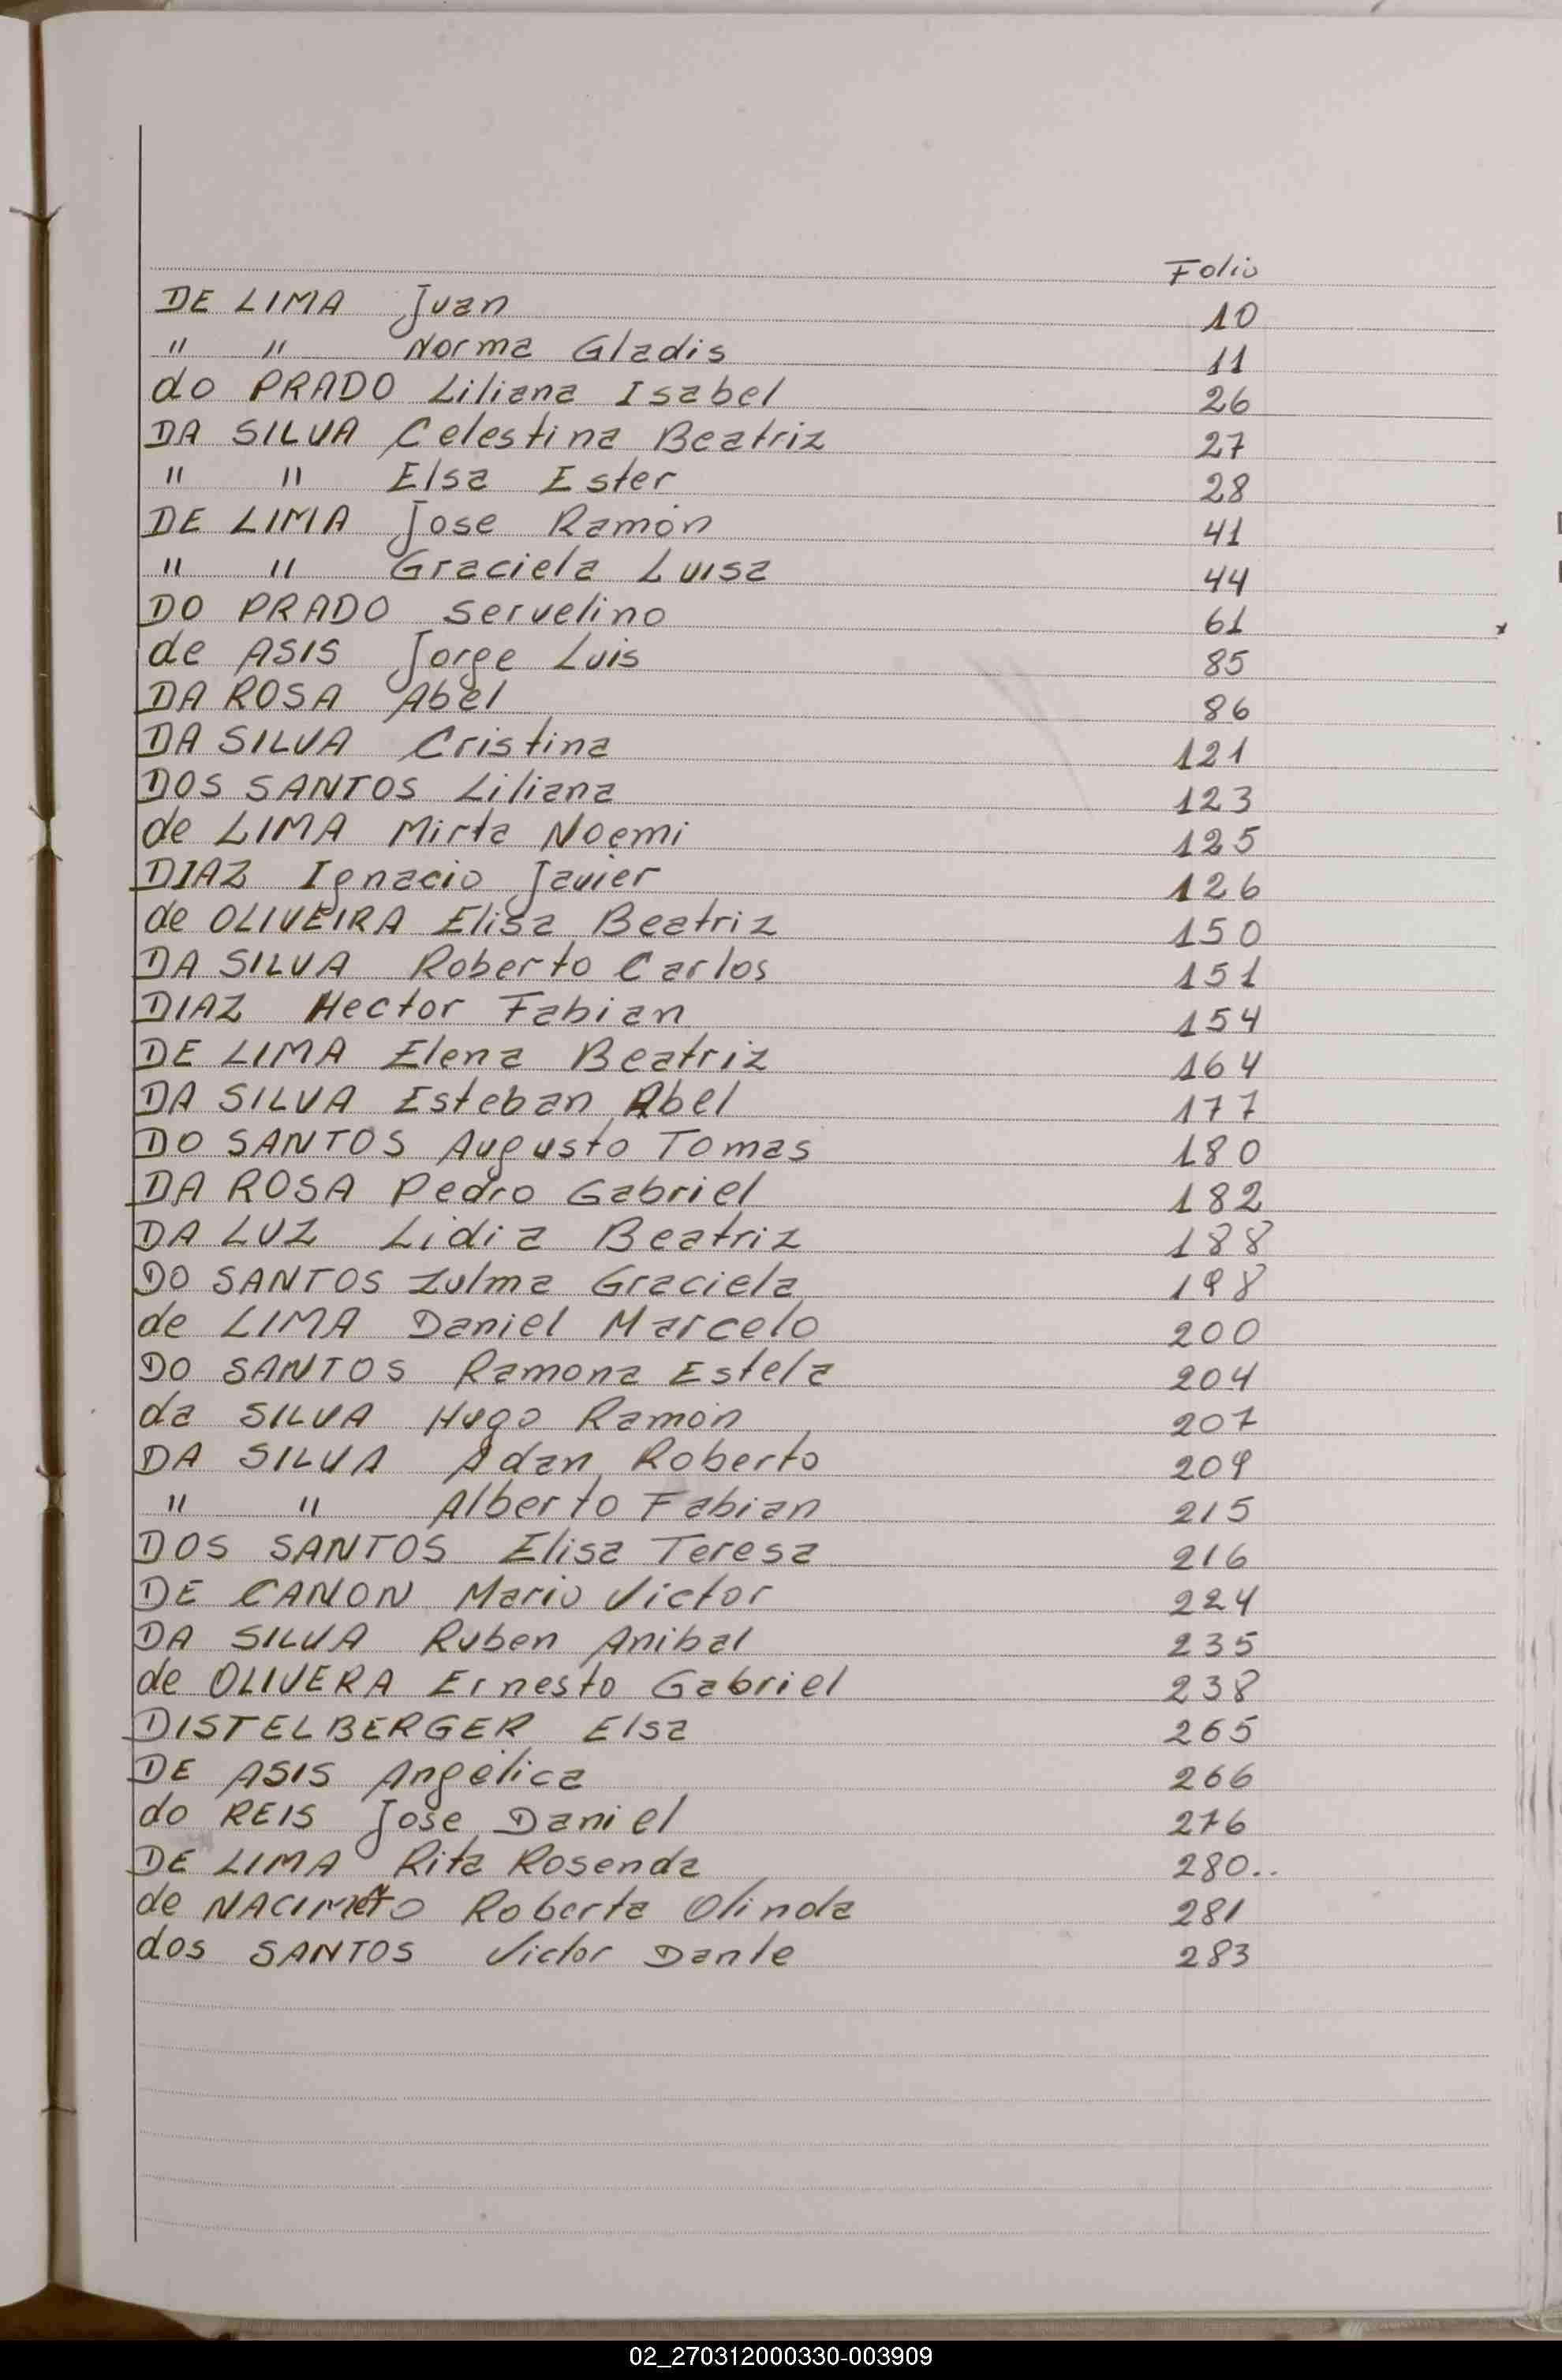 Folio
DE LIMA Juan 10
" " Norma Gladis 11
do PRADO Liliana Isabel 26
DA SILVA Celestina Beatriz 27
" " Elsa Ester 28
DE LIMA Jose Ramón 41
" " Graciela Luisa 44
DO PRADO Servelino 61
de ASIS Jorge Luis 85
DA ROSA Abel 86
DA SILVA Cristina 121
DOS SANTOS Liliana 123
de LIMA Mirta Noemi 125
DIAZ Ignacio Javier 126
de OLIVEIRA Elisa Beatriz 150
DA SILVA Roberto Carlos 151
DIAZ Hector Fabian 154
DE LIMA Elena Beatriz 164
DA SILVA Esteban Abel 177
DO SANTOS Augusto Tomas 180
DA ROSA Pedro Gabriel 182
DA LUZ Lidia Beatriz 188
DO SANTOS Zulma Graciela 198
de LIMA Daniel Marcelo 200
DO SANTOS Ramona Estela 204
da SILVA Hugo Ramón 207
DA SILVA Adan Roberto 209
" " Alberto Fabian 215
DOS SANTOS Elisa Teresa 216
DE CANON Mario Victor 224
DA SILVA Ruben Anibal 235
de OLIVERA Ernesto Gabriel 238
DISTELBERGER Elsa 265
DE ASIS Angélica 266
do REIS Jose Daniel 276
DE LIMA Rita Rosenda 280..
de Roberta Olinda 281
dos SANTOS Victor Dante 283
02_270312000330-003909